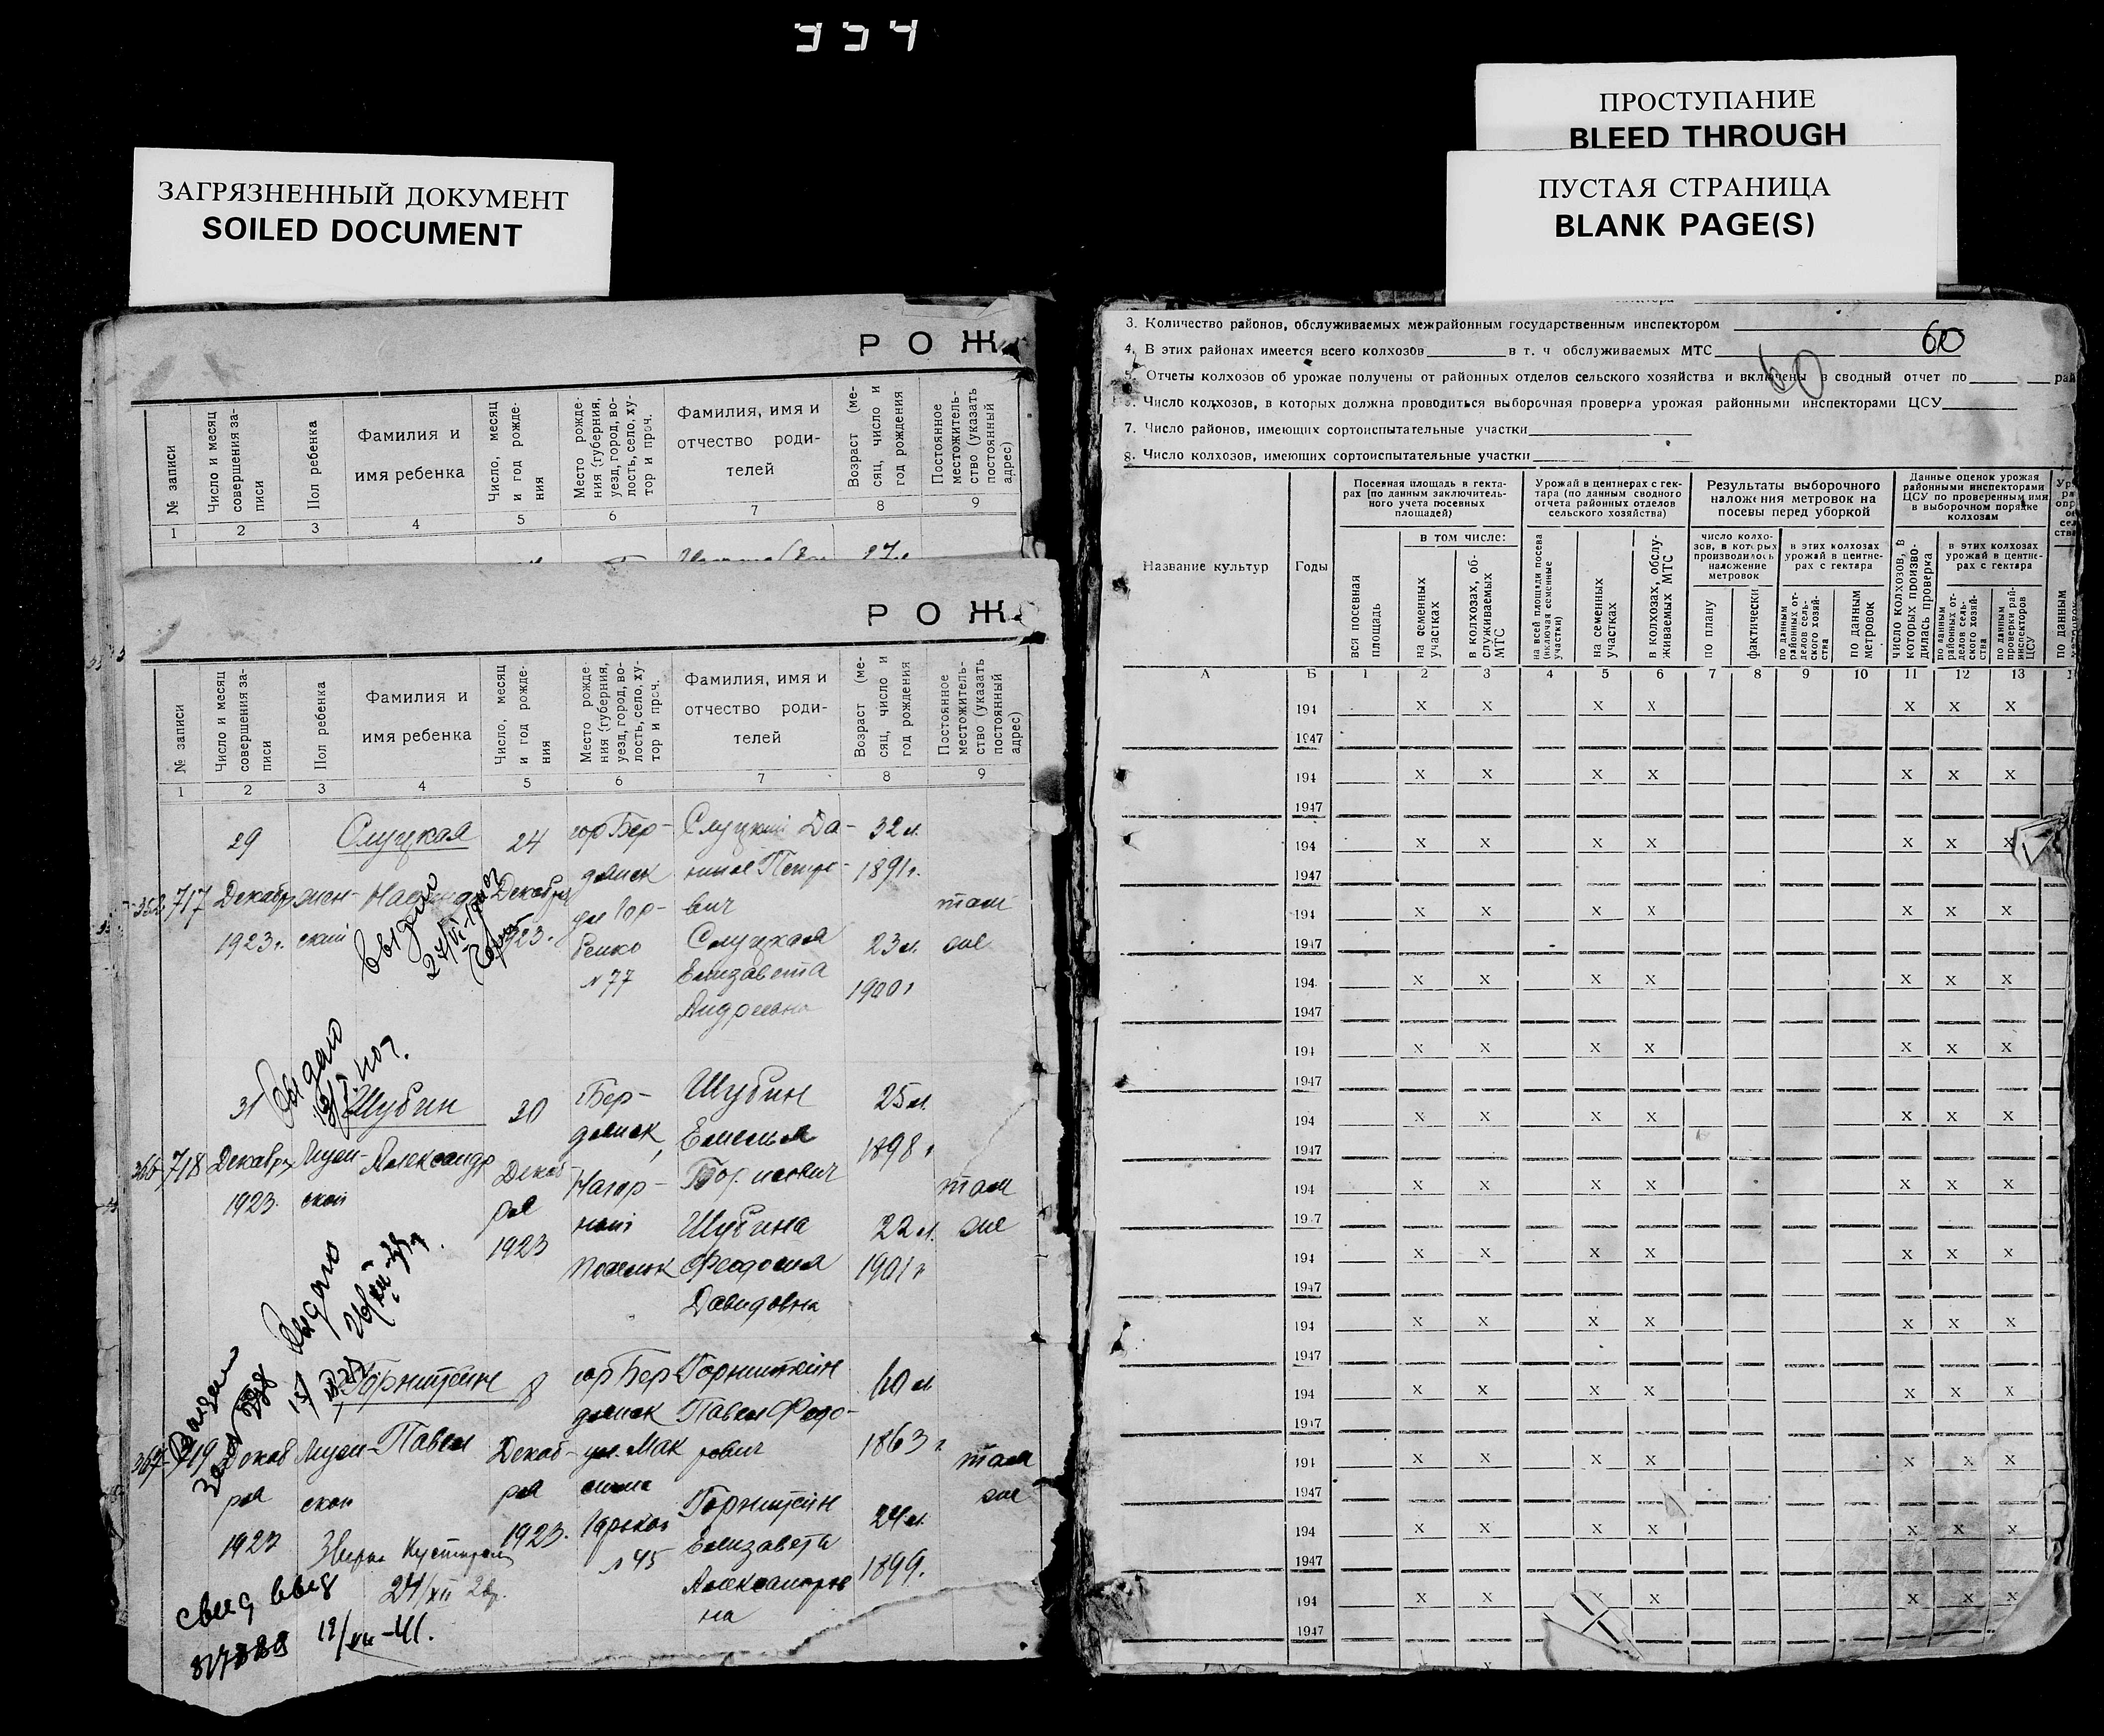 334
ЗАГРЯЗНЕННЫЙ ДОКУМЕНТ
SOILED DOCUMENT
ПРОСТУПАНИЕ
BLEED THROUGH
ПУСТАЯ СТРАНИЦА
BLANK PAGE(S)
Р О Ж
№ записи
Число и месяц совершения записи
Пол ребенка
Фамилия и
имя ребенка
Число, месяц и год рождения
Место рождения (губерния, уезд, город, волость, село, хутор и проч.
Фамилия, имя и
отчество роди-
телей
Возраст (месяц, число и год рождения
Постоянное местожительство (указать постоянный адрес)
1 2 3 4 5 6 7 8 9
Р О Ж
№ записи
Число и месяц совершения записи
Пол ребенка
Фамилия и
имя ребенка
Число, месяц и год рождения
Место рождения (губерния, уезд, город, волость, село, хутор и проч.
Фамилия, имя и
отчество роди-
телей
Возраст (месяц, число и год рождения
Постоянное местожительство (указать постоянный адрес)
1 2 3 4 5 6 7 8 9
717
29
Декабр
1923 г.
жен-
ский
Слуцкая
24
Декабря
1923 г.
гор Бер-
дянск
№ 77
Слуцкий Да-
вич
Слуцкая
Елизавета
Андреевна
32 л.
1891 г.
23 л.
1900 г
там
же
выдано
выдано
718
31
Декабря
1923
муж-
ской
Шубин
Александр
30
Декаб-
ря
1923
Бер-
дянск,
Нагор-
ный
поселок
Шубин
Емельян
Борисович
Шубина
Феодосия
Давидовна
25 л.
1898 г
22 л.
1901 г
там
же
выдано
719
Декаб
ря
1923
муж-
ской
Горнштейн
Павел
8
Декаб-
ря
1923.
гор Бер
дянск
ул. Мак
сима
Горького
№ 45
Горнштейн
Павел Федо-
рович
Горнштейн
Елизавета
Александров
на
60 л
1863 г
24 л.
1899.
там
же
24/XII
свид выд
12/XII-41.
60
3. Количество районов, обслуживаемых межрайонным государственным инспектором
4. В этих районах имеется всего колхозов в т. ч обслуживаемых МТС
60
Отчеты колхозов об урожае получены от районных отделов сельского хозяйства и включены в сводный отчет по рай
Число колхозов, в которых должна проводиться выборочная проверка урожая районными инспекторами ЦСУ
7. Число районов, имеющих сортоиспытательные участки
8. Число колхозов, имеющих сортоиспытательные участки
Название культур
Годы
Посевная площадь в гекта-
рах (по данным заключитель-
ного учета посевных
площадей)
вся посевная площадь
в том числе:
на семенных участках
в колхозах, обслуживаемых МТС
Урожай в центнерах с гек-
тара (по данным сводного
отчета районных отделов
сельского хозяйства)
на всей площади посева (включая семенные участки)
на семенных участках
в колхозах, обслуживаемых МТС
Результаты выборочного
наложения метровок на
посевы перед уборкой
число колхо-
зов, в которых
производилось
наложение
метровок
по плану
фактически
в этих колхозах
урожай в центне-
рах с гектара
по данным районных отделов сельского хозяйства
по данным метровок
Данные оценок урожая
районными инспекторами
ЦСУ по проверенным ими
в выборочном порядке
колхозам
число колхозов, в которых производилась проверка
в этих колхозах
урожай в центне-
рах с гектара
по данным районных отделов сельского хозяйства
по данным проверки райинспекторов ЦСУ
по данным
А Б 1 2 3 4 5 6 7 8 9 10 11 12 13
194 х х х х х х х
1947
194 х х х х х х х
1947
194 х х х х х х х
1947
194 х х х х х х х
1947
194 х х х х х х х
1947
194 х х х х х х х
1947
194 х х х х х х х
1947
194 х х х х х х х
1947
194 х х х х х х х
1947
194 х х х х х х х
1947
194 х х х х х х х
1947
194 х х х х х х х
1947
194 х х х х х х х
1947
194 х х х х х х х
1947